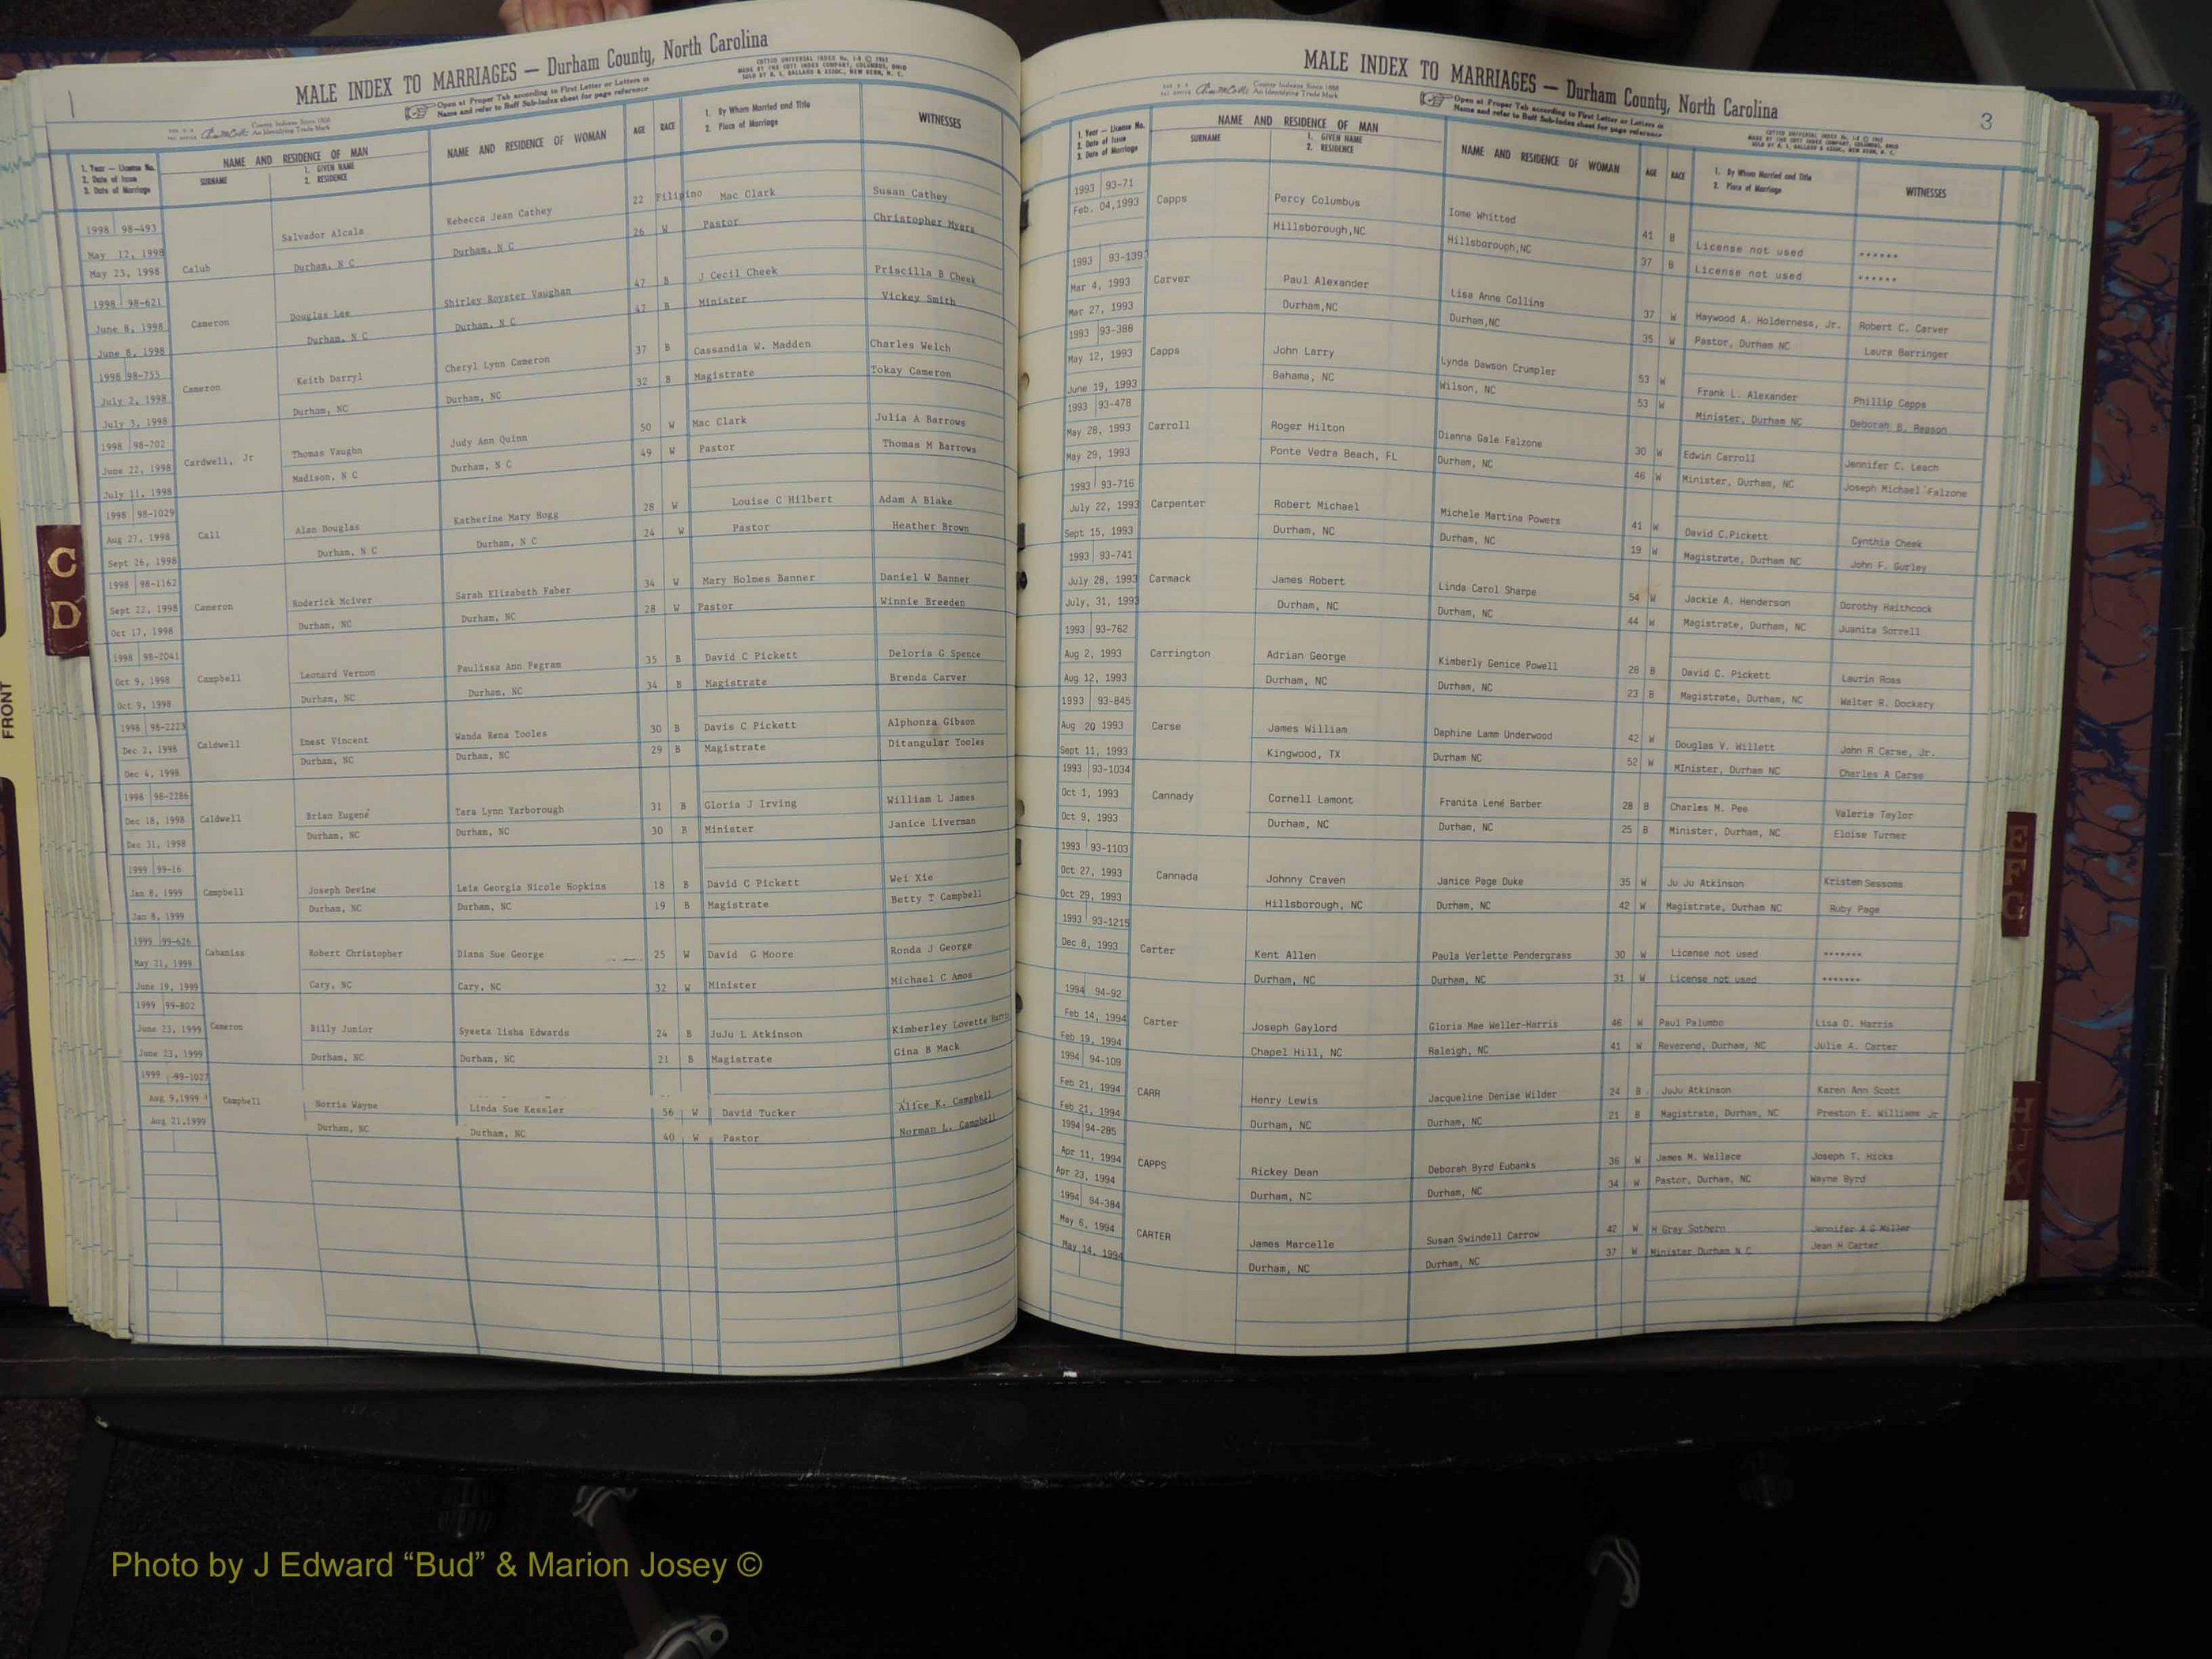 MALE INDEX TO MARRIAGES — Durham County, North Carolina
County Indexes Since 1888
An Identifying Trade Mark
Open at Proper Tab according to First Letter or Letters in
Name and refer to Buff Sub-Index sheet for page reference
COTTCO UNIVERSAL INDEX
MADE BY THE COTT INDEX COMPANY, COLUMBUS, OHIO
SOLD BY R. L. BALLARD & ASSOC., NEW BERN, N. C.
1. Year — License No.
2. Date of Issue
3. Date of Marriage
NAME AND RESIDENCE OF MAN
SURNAME
1. GIVEN NAME
2. RESIDENCE
NAME AND RESIDENCE OF WOMAN
AGE
RACE
1. By Whom Married and Title
2. Place of Marriage
WITNESSES
1998 98-493 Salvador Alcala Rebecca Jean Cathey 22 Filipino Mac Clark Susan Cathey
May 12, 1998 Durham, N C Durham, N C 26 W Pastor Christopher Myers
May 23, 1998 Calub
1998 98-621 Douglas Lee Shirley Royster Vaughan 47 B J Cecil Cheek Priscilla B Cheek
June 8, 1998 Cameron Durham, N C Durham, N C 47 B Minister Vickey Smith
June 8, 1998
1998 98-755 Keith Darryl Cheryl Lynn Cameron 37 B Cassandia W. Madden Charles Welch
July 2, 1998 Cameron Durham, NC Durham, NC 32 B Magistrate Tokay Cameron
July 3, 1998
1998 98-702 Thomas Vaughn Judy Ann Quinn 50 W Mac Clark Julia A Barrows
June 22, 1998 Cardwell, Jr Madison, N C Durham, N C 49 W Pastor Thomas M Barrows
July 11, 1998
1998 98-1029 Alan Douglas Katherine Mary Hogg 28 W Louise C Hilbert Adam A Blake
Aug 27, 1998 Call Durham, N C Durham, N C 24 W Pastor Heather Brown
Sept 26, 1998
1998 98-1162 Roderick Mciver Sarah Elizabeth Faber 34 W Mary Holmes Banner Daniel W Banner
Sept 22, 1998 Cameron Durham, NC Durham, NC 28 W Pastor Winnie Breeden
Oct 17, 1998
1998 98-2041 Leonard Vernon Paulissa Ann Pegram 35 B David C Pickett Deloris G Spence
Oct 9, 1998 Campbell Durham, NC Durham, NC 34 B Magistrate Brenda Carver
Oct 9, 1998
1998 98-2223 Enest Vincent Wanda Rena Tooles 30 B Davis C Pickett Alphonza Gibson
Dec 2, 1998 Caldwell Durham, NC Durham, NC 29 B Magistrate Ditangular Tooles
Dec 4, 1998
1998 98-2286 Brian Eugene Tara Lynn Yarborough 31 B Gloria J Irving William L James
Dec 18, 1998 Caldwell Durham, NC Durham, NC 30 B Minister Janice Liverman
Dec 31, 1998
1999 99-16 Joseph Devine Leia Georgia Nicole Hopkins 18 B David C Pickett Wei Xie
Jan 8, 1999 Campbell Durham, NC Durham, NC 19 B Magistrate Betty T Campbell
Jan 8, 1999
1999 99-626 Cabaniss Robert Christopher Diana Sue George 25 W David G Moore Ronda J George
May 21, 1999 Cary, NC Cary, NC 32 W Minister Michael C Amos
June 19, 1999
1999 99-802 Billy Junior Syeeta Iisha Edwards 24 B JuJu L Atkinson Kimberley Lovette
June 23, 1999 Cameron Durham, NC Durham, NC 21 B Magistrate Gina B Mack
June 23, 1999
1999 99-1027 Norris Wayne Linda Sue Kessler 56 W David Tucker Alice K. Campbell
Aug 9,1999 Campbell Durham, NC Durham, NC 40 W Pastor Norman L. Campbell
Aug 21,1999
C
D
FRONT
MALE INDEX TO MARRIAGES — Durham County, North Carolina
3
County Indexes Since 1888
An Identifying Trade Mark
Open at Proper Tab according to First Letter or Letters in
Name and refer to Buff Sub-Index sheet for page reference
1. Year — License No.
2. Date of Issue
3. Date of Marriage
NAME AND RESIDENCE OF MAN
SURNAME
1. GIVEN NAME
2. RESIDENCE
NAME AND RESIDENCE OF WOMAN
AGE
RACE
1. By Whom Married and Title
2. Place of Marriage
WITNESSES
1993 93-71 Capps Percy Columbus Iome Whitted 41 B License not used ******
Feb. 04,1993 Hillsborough,NC Hillsborough,NC 37 B License not used ******
1993 93-139 Carver Paul Alexander Lisa Anne Collins 37 W Haywood A. Holderness, Jr. Robert C. Carver
Mar 4, 1993 Durham,NC Durham,NC 35 W Pastor, Durham NC Laura Barringer
Mar 27, 1993
1993 93-388 Capps John Larry Lynda Dawson Crumpler 53 W Frank L. Alexander Phillip Capps
May 12, 1993 Bahama, NC Wilson, NC 53 W Minister, Durham NC Deborah B. Beason
June 19, 1993
1993 93-478 Carroll Roger Hilton Dianna Gale Falzone 30 W Edwin Carroll Jennifer C. Leach
May 28, 1993 Ponte Vedra Beach, FL Durham, NC 46 W Minister, Durham, NC Joseph Michael Falzone
May 29, 1993
1993 93-716 Carpenter Robert Michael Michele Martina Powers 41 W David C.Pickett Cynthia Cheek
July 22, 1993 Durham, NC Durham, NC 19 W Magistrate, Durham NC John F. Gurley
Sept 15, 1993
1993 93-741 Carmack James Robert Linda Carol Sharpe 54 W Jackie A. Henderson Dorothy Haithcock
July 28, 1993 Durham, NC Durham, NC 44 W Magistrate, Durham, NC Juanita Sorrell
July, 31, 1993
1993 93-762 Carrington Adrian George Kimberly Genice Powell 28 B David C. Pickett Laurin Ross
Aug 2, 1993 Durham, NC Durham, NC 23 B Magistrate, Durham, NC Walter R. Dockery
Aug 12, 1993
1993 93-845 Carse James William Daphine Lamm Underwood 42 W Douglas V. Willett John R Carse, Jr.
Aug 20 1993 Kingwood, TX Durham NC 52 W MInister, Durham NC Charles A Carse
Sept 11, 1993
1993 93-1034 Cannady Cornell Lamont Franita Lené Barber 28 B Charles M. Pee Valeria Taylor
Oct 1, 1993 Durham, NC Durham, NC 25 B Minister, Durham, NC Eloise Turner
Oct 9, 1993
1993 93-1103 Cannada Johnny Craven Janice Page Duke 35 W Ju Ju Atkinson Kristen Sessoms
Oct 27, 1993 Hillsborough, NC Durham, NC 42 W Magistrate, Durham NC Ruby Page
Oct 29, 1993
1993 93-1215 Carter Kent Allen Paula Verlette Pendergrass 30 W License not used *******
Dec 8, 1993 Durham, NC Durham, NC 31 W License not used *******
1994 94-92 Carter Joseph Gaylord Gloria Mae Weller-Harris 46 W Paul Palumbo Lisa D. Harris
Feb 14, 1994 Chapel Hill, NC Raleigh, NC 41 W Reverend, Durham, NC Julie A. Carter
Feb 19, 1994
1994 94-109 CARR Henry Lewis Jacqueline Denise Wilder 24 B JuJu Atkinson Karen Ann Scott
Feb 21, 1994 Durham, NC Durham, NC 21 B Magistrate, Durham, NC Preston E. Williams Jr
Feb 21, 1994
1994 94-285 CAPPS Rickey Dean Deborah Byrd Eubanks 36 W James M. Wallace Joseph T. Hicks
Apr 11, 1994 Durham, NC Durham, NC 34 W Pastor, Durham, NC Wayne Byrd
Apr 23, 1994
1994 94-384 CARTER James Marcelle Susan Swindell Carrow 42 W H Gray Sothern Jennifer A G Miller
May 6, 1994 Durham, NC Durham, NC 37 W Minister Durham N C Jean H Carter
May 14, 1994
Photo by J Edward “Bud” & Marion Josey ©